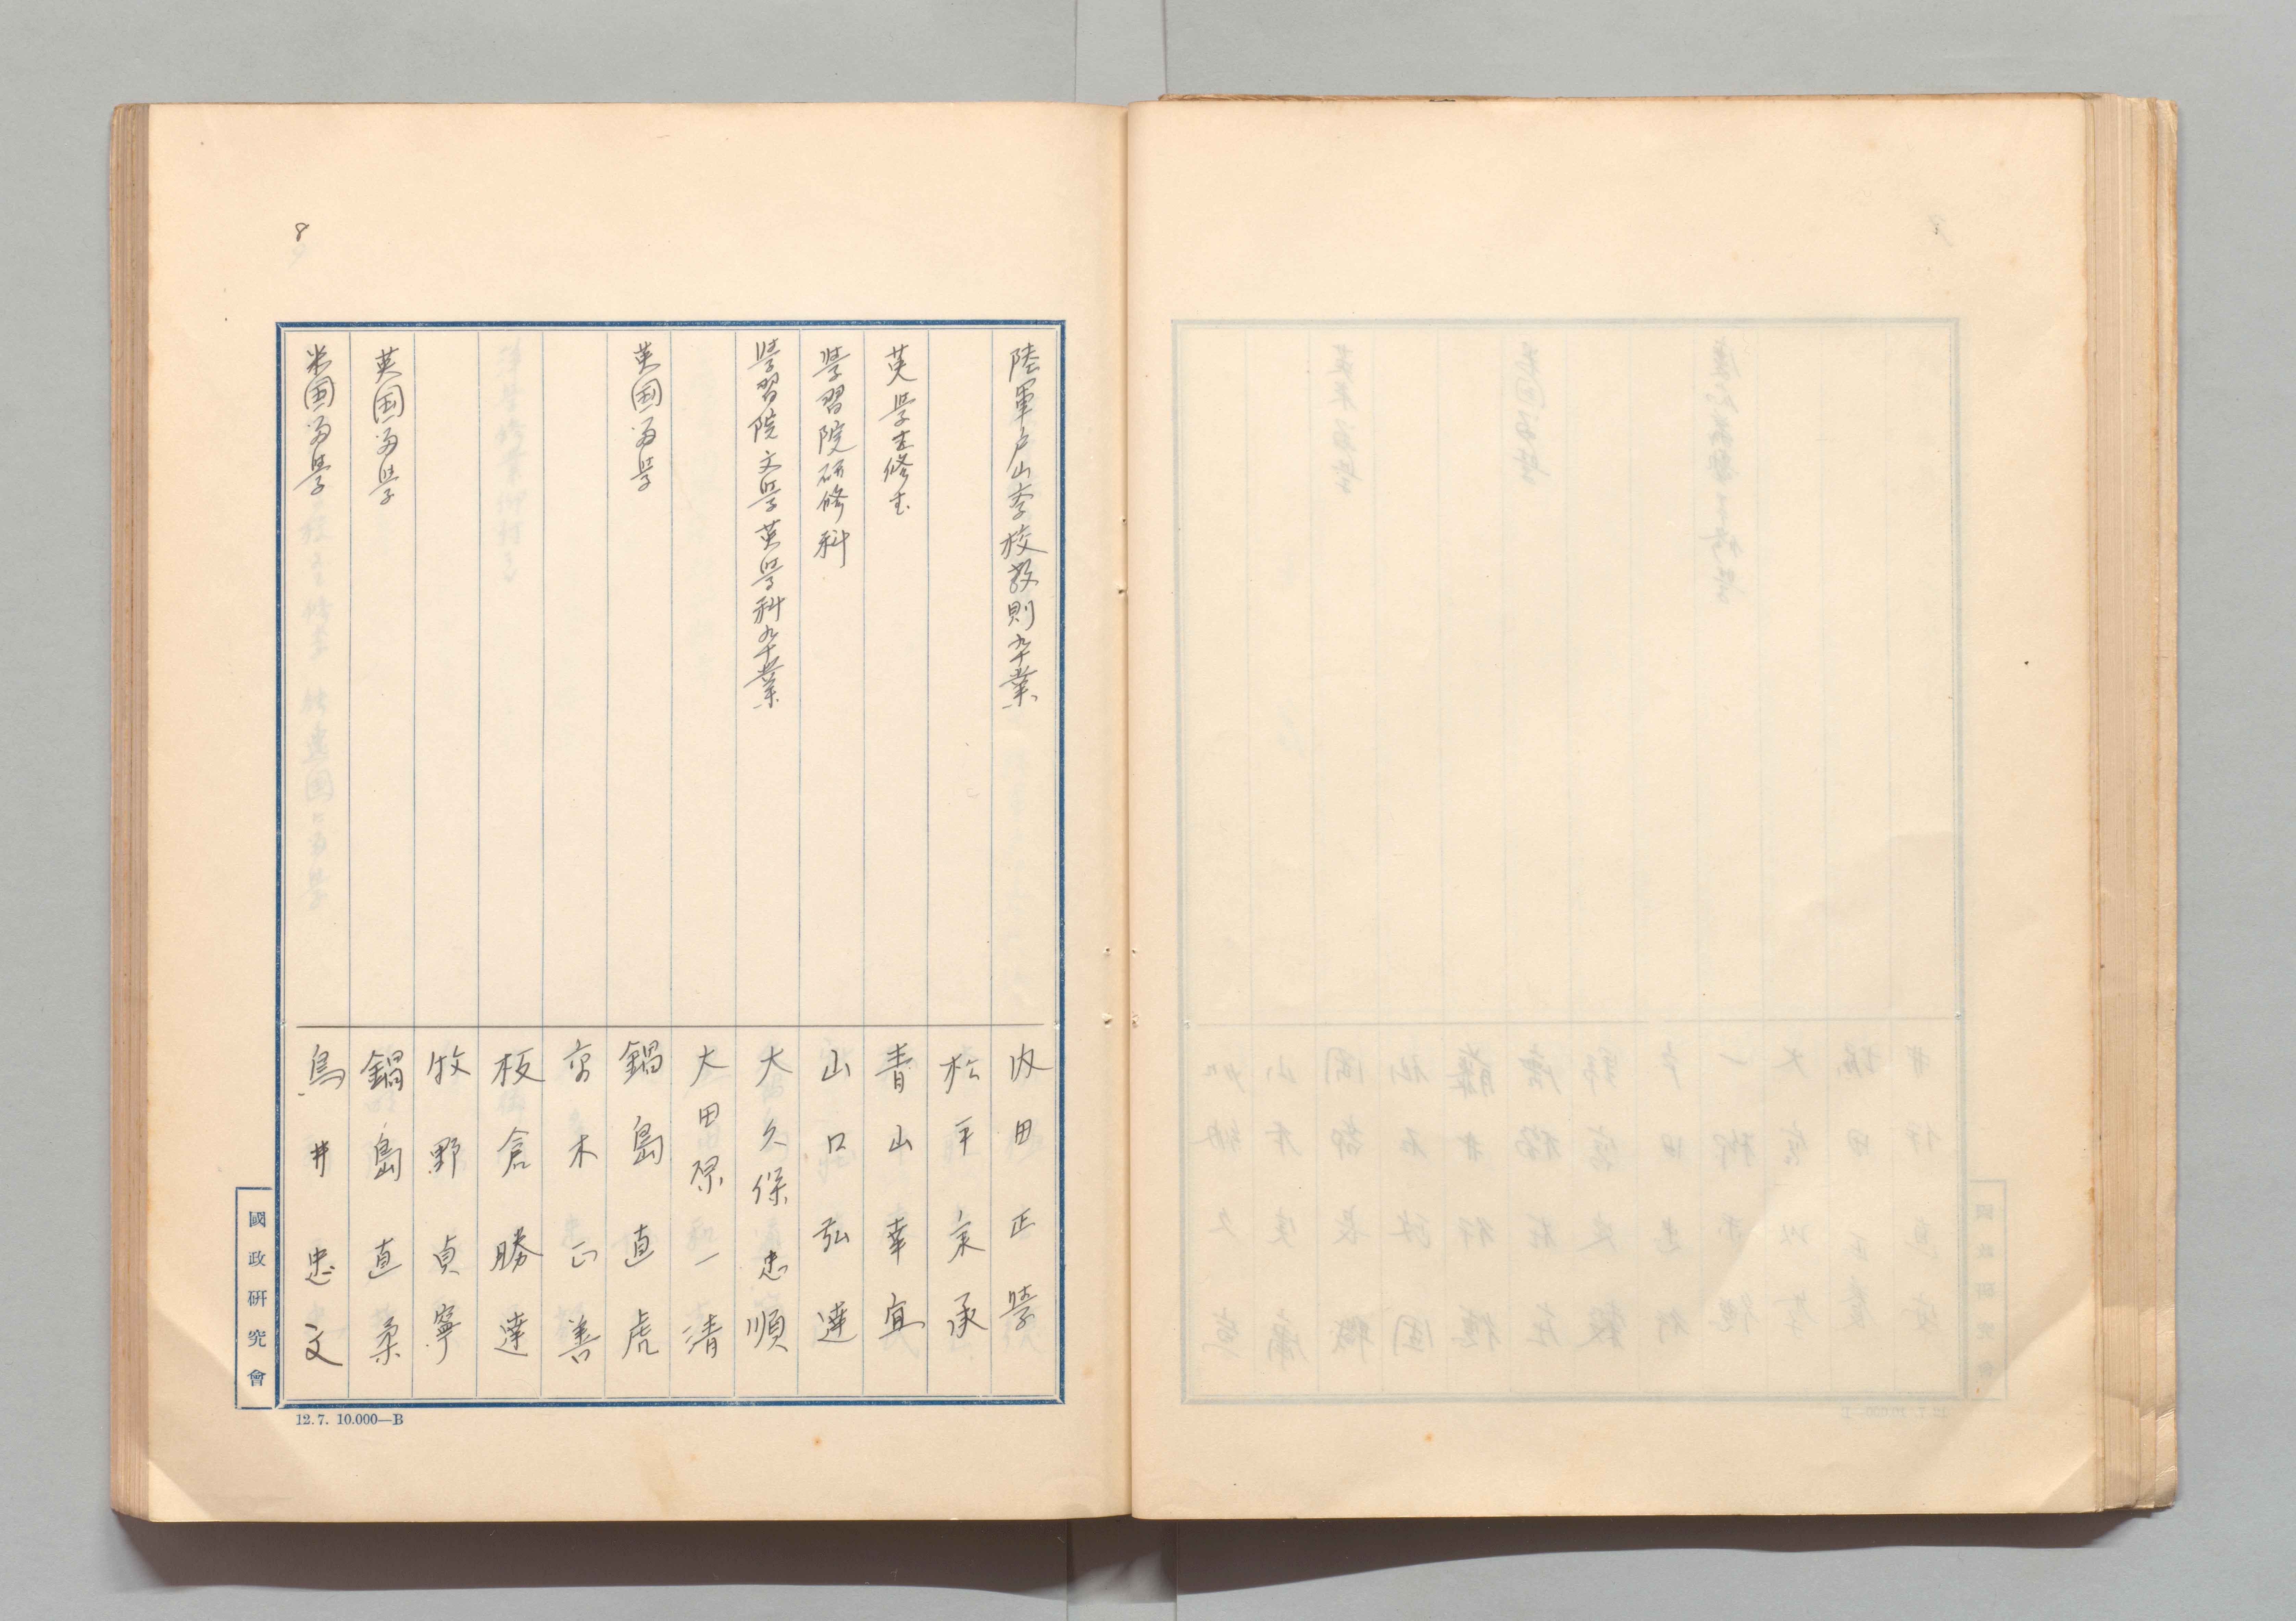 8
陸軍戸山学校教則卒業
内田正學
松平乗承
英學専修
青山幸宜
學習院研修科
山口弘達
學習院文學英學科卒業
大久保忠順
大田原一清
英国留学
鍋島直虎
京木正善
板倉勝達
牧野貞寧
英国留学
鍋島直柔
米国留学
鳥井忠文
國政研究會
12.7. 10.000—B